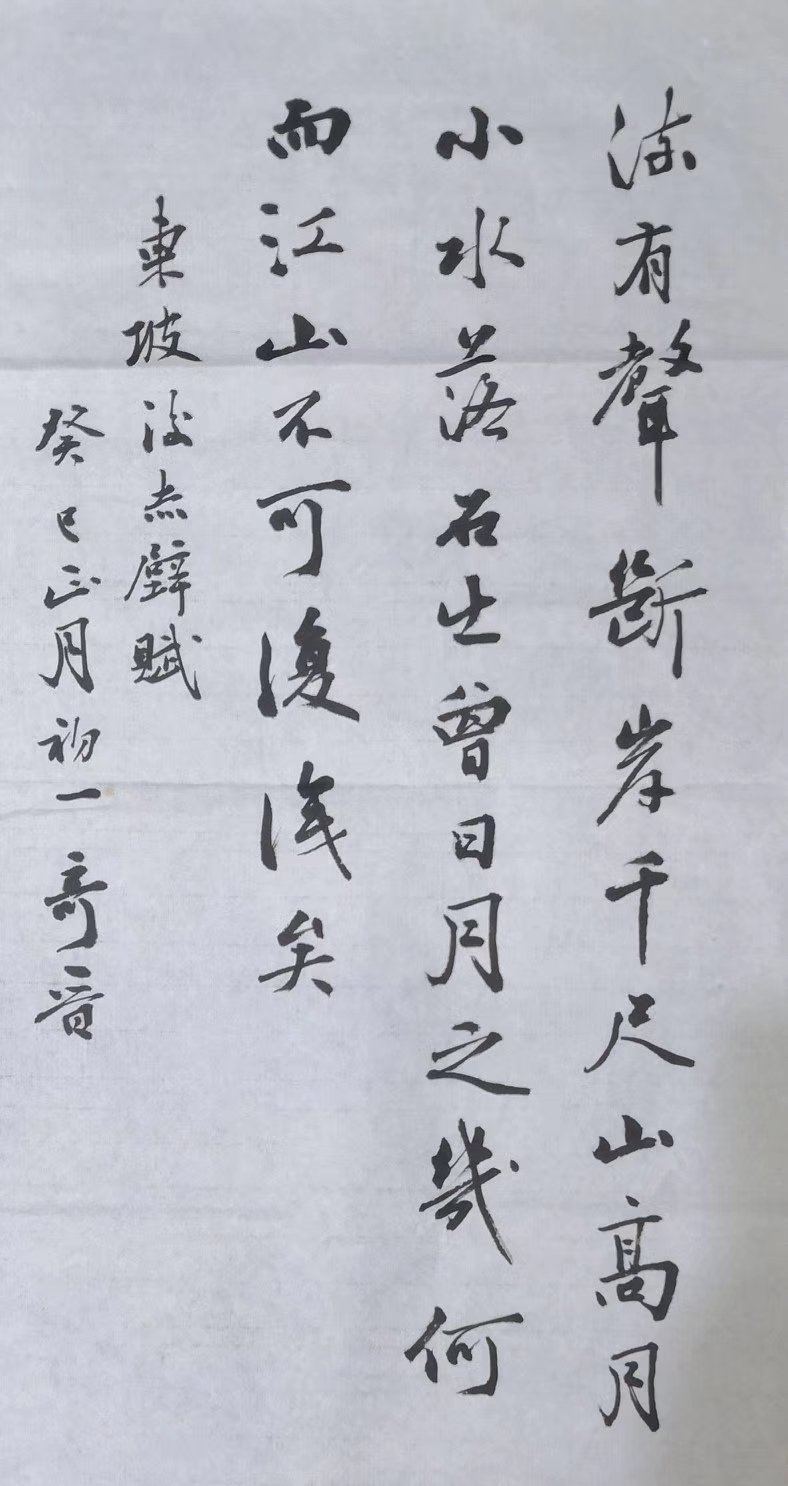 流有聲斷岸千尺山高月
小水落石出曾日月之幾何
而江山不可復識矣
東坡後赤壁賦
癸巳正月初一奇音